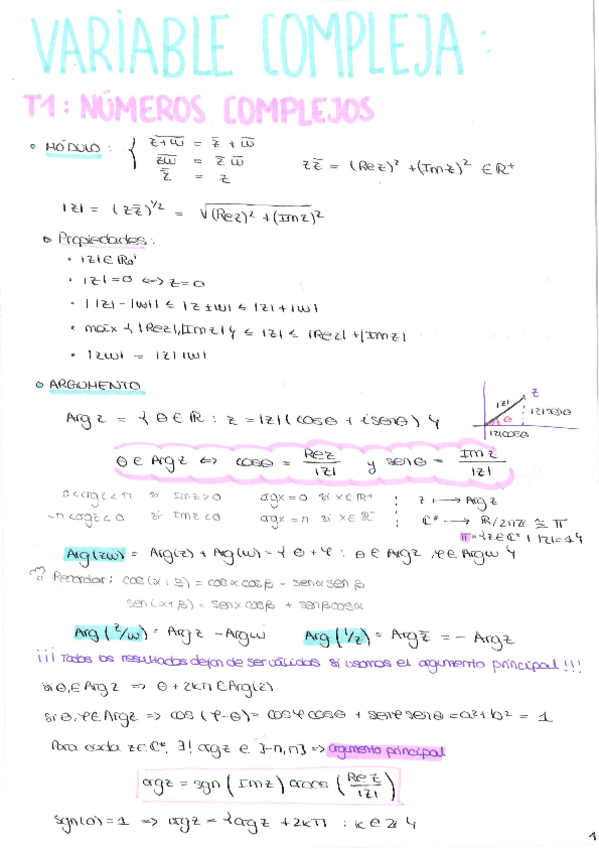 VARIABLE COMPLEJA :
T1: NÚMEROS COMPLEJOS
• MÓDULO : { \overline{z+w} = \bar{z} + \bar{w}
\overline{zw} = \bar{z} \bar{w}    z\bar{z} = (Re z)² + (Im z)² ∈ ℝ⁺
\bar{\bar{z}} = z
|z| = (z\bar{z})^{1/2} = √((Re z)² + (Im z)²
• Propiedades:
• |z| ∈ ℝ₀⁺
• |z| = 0 <-> z = 0
• ||z| - |w|| ≤ |z ± w| ≤ |z| + |w|
• máx {|Re z|, |Im z|} ≤ |z| ≤ |Re z| + |Im z|
• |zw| = |z| |w|
• ARGUMENTO
z
|z|
|z| sen θ
θ
|z| cos θ
Arg z = { θ ∈ ℝ : z = |z| (cos θ + i sen θ) }
θ ∈ Arg z ⇔ cos θ = Re z / |z|  y  sen θ = Im z / |z|
0 < arg z < π si Im z > 0    arg x = 0 si x ∈ ℝ⁺    z ⟼ Arg z
-π < arg z < 0 si Im z < 0    arg x = π si x ∈ ℝ⁻    ℂ* → ℝ/2πℤ ≅ 𝕋
𝕋 = {z ∈ ℂ* : |z| = 1}
Arg(zw) = Arg(z) + Arg(w) = { θ + φ : θ ∈ Arg z, φ ∈ Arg w }
Recordar: cos(α+β) = cos α cos β - sen α sen β
sen(α+β) = sen α cos β + sen β cos α
Arg(z/w) = Arg z - Arg w    Arg(1/z) = Arg \bar{z} = - Arg z
¡¡¡ Todos los resultados dejan de ser válidos si usamos el argumento principal !!!
si θ ∈ Arg z ⇒ θ + 2kπ ∈ Arg(z)
si θ, φ ∈ Arg z ⇒ cos (φ-θ) = cos φ cos θ + sen φ sen θ = a² + b² = 1
Para cada z ∈ ℂ*, ∃! arg z ∈ ]-π, π] ⇒ argumento principal
arg z = sgn (Im z) arcos (Re z / |z|)
sgn(0) = 1 ⇒ arg z = {arg z + 2kπ : k ∈ ℤ}
1